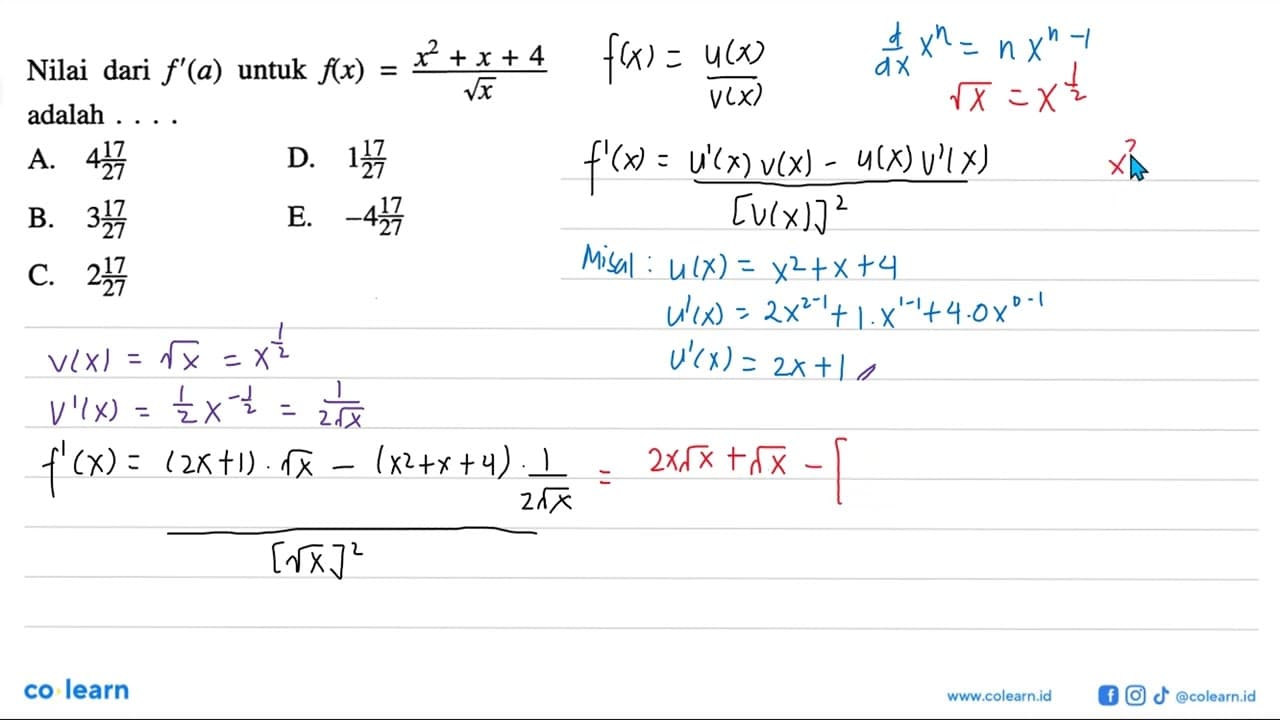 Nilai dari f'(a) untuk f(x) = \frac{x^2 + x + 4}{\sqrt{x}}
adalah . . . .
A. 4\frac{17}{27}
B. 3\frac{17}{27}
C. 2\frac{17}{27}
D. 1\frac{17}{27}
E. -4\frac{17}{27}
f(x) = \frac{u(x)}{v(x)}
\frac{d}{dx} x^n = n x^{n-1}
\sqrt{x} = x^{\frac{1}{2}}
f'(x) = \frac{u'(x) v(x) - u(x) v'(x)}{[v(x)]^2}
Misal : u(x) = x^2 + x + 4
u'(x) = 2x^{2-1} + 1 . x^{1-1} + 4 . 0x^{0-1}
u'(x) = 2x + 1
v(x) = \sqrt{x} = x^{\frac{1}{2}}
v'(x) = \frac{1}{2} x^{-\frac{1}{2}} = \frac{1}{2\sqrt{x}}
f'(x) = \frac{(2x+1) . \sqrt{x} - (x^2+x+4) . \frac{1}{2\sqrt{x}}}{[\sqrt{x}]^2} = 2x\sqrt{x} + \sqrt{x} - [
co learn
www.colearn.id
@colearn.id